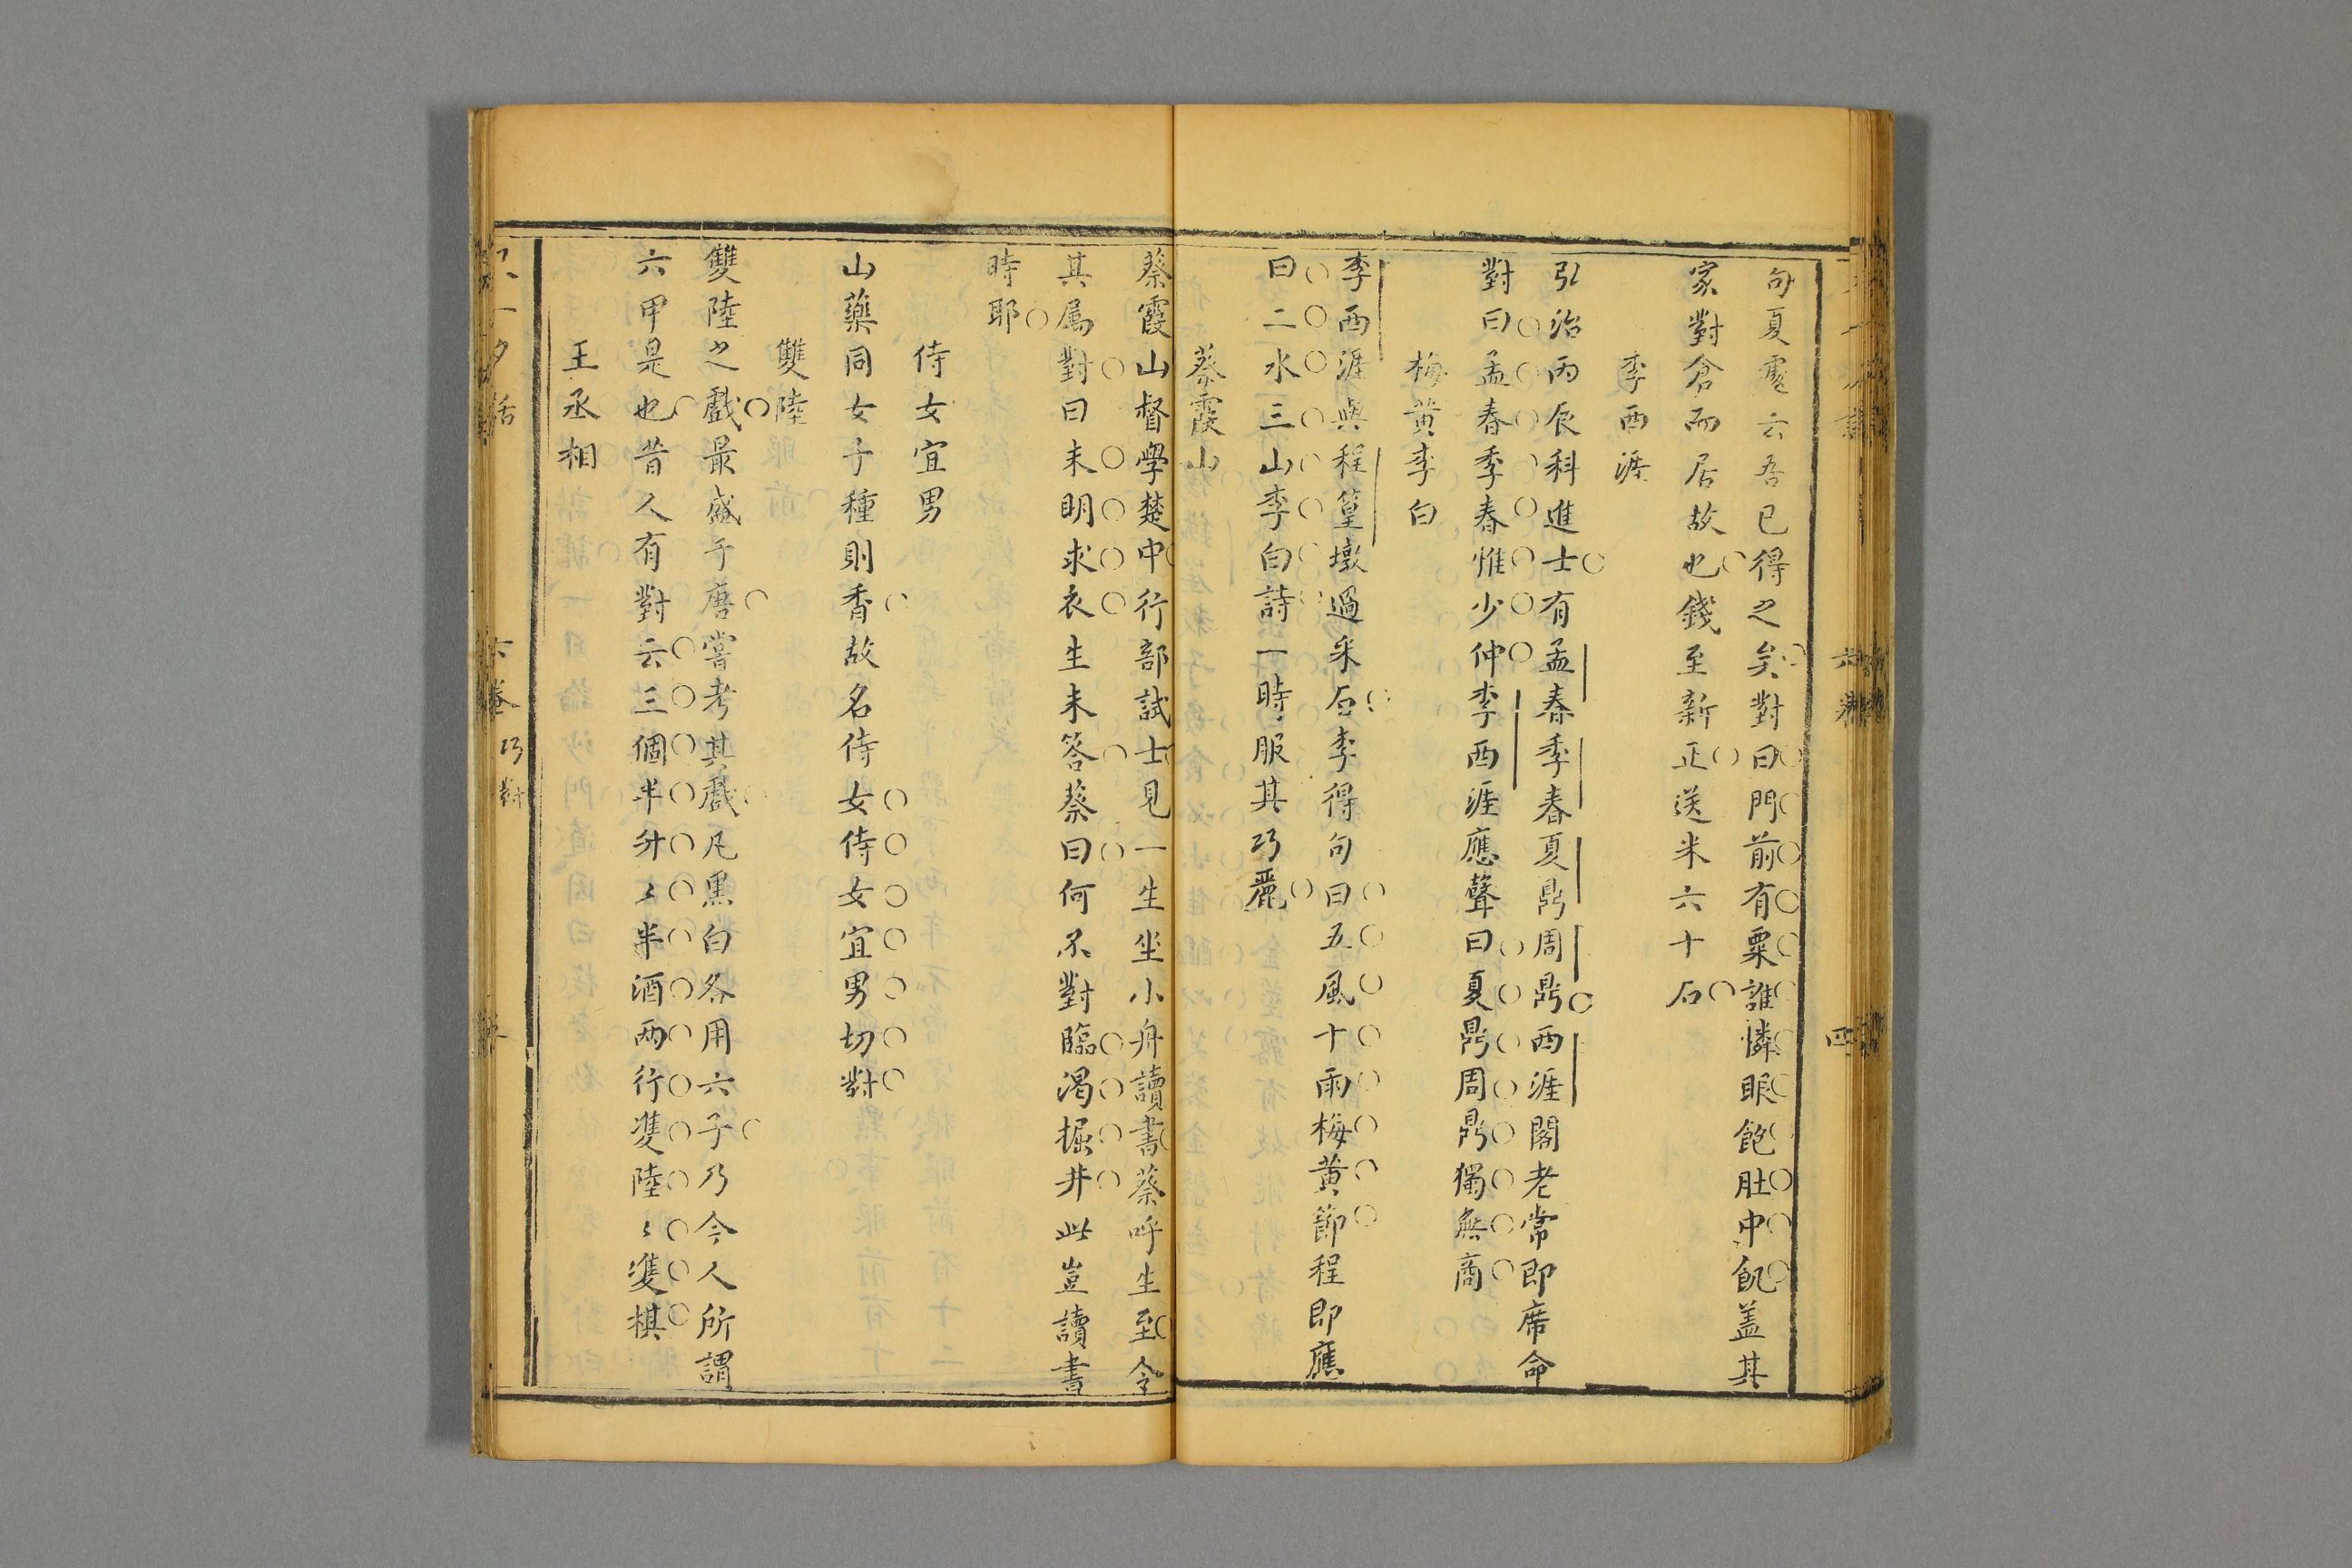 句夏雲云吾已得之矣對曰門前有粟誰憐眼飽肚中飢盖其
家對倉而居故也錢至新正送米六十石
李西涯
弘治丙辰科進士有孟春季春夏鼎周鼎西涯閣老常即席命
對曰孟春季春惟少仲李西涯應聲曰夏鼎周鼎獨無商
梅黃李白
李西涯與程篁墩過采石李得句曰五風十雨梅黃節程即應
曰二水三山李白詩一時服其巧麗
蔡霞山
蔡霞山督學楚中行部試士見一生坐小舟讀書蔡呼生至令
其属對曰未明求衣生未答蔡曰何不對臨渴掘井此豈讀書
時耶
侍女宜男
山藥同女子種則香故名侍女侍女宜男切對
雙陸
雙陸之戲最盛于唐嘗考其戲凡黑白各用六子乃今人所謂
六甲是也昔人有對云三個半升〻半酒兩行雙陸〻雙棋
王丞相
一夕話
六巻
巧對